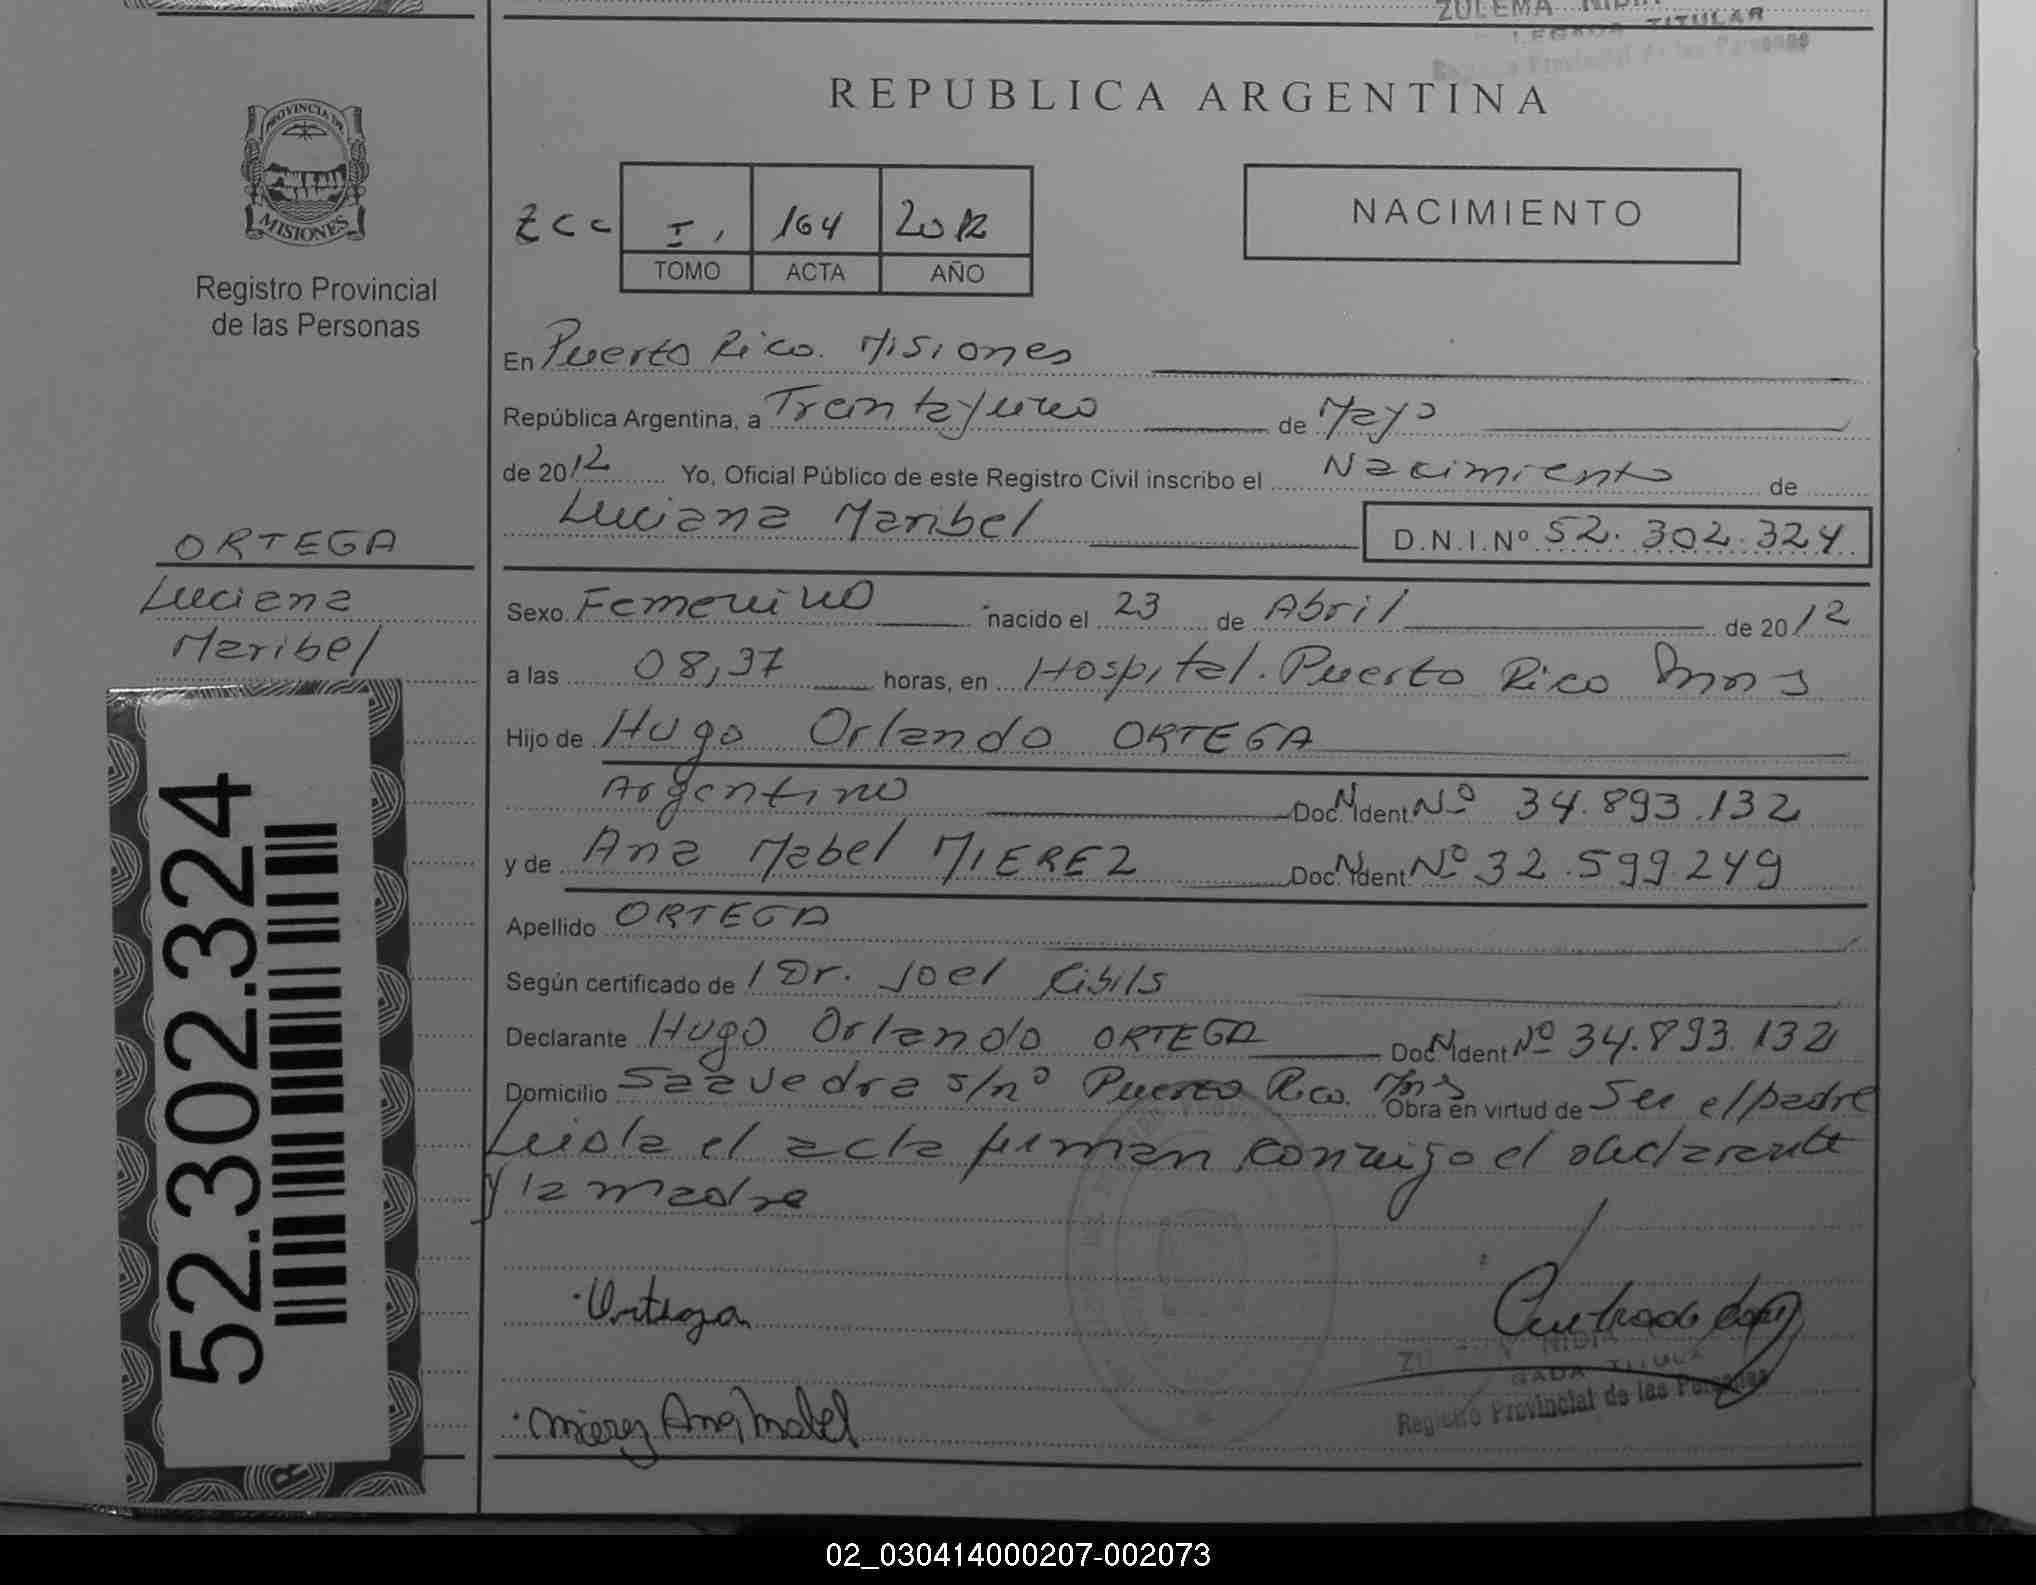 ZULEMA NIDIA
LEGADA TITULAR
Registro Provincial de las Personas
REPUBLICA ARGENTINA
PROVINCIA DE
MISIONES
Registro Provincial
de las Personas
I, 164 2012
TOMO ACTA AÑO
NACIMIENTO
En Puerto Rico. Misiones
República Argentina, a Treintayuno de Mayo
de 2012 Yo, Oficial Público de este Registro Civil inscribo el Nacimiento de
Luciana Maribel D.N.I.Nº 52.302.324
ORTEGA
Luciana
Maribel
Sexo Femenino nacido el 23 de Abril de 2012
a las 08,37 horas, en Hospital. Puerto Rico Mnes
Hijo de Hugo Orlando ORTEGA
Argentino Doc. N. Ident Nº 34.893.132
y de Ana Mabel MIEREZ Doc. N. Ident. Nº 32.599.249
Apellido ORTEGA
Según certificado de / Dr. Joel Cibils
Declarante Hugo Orlando ORTEGA Doc N Ident Nº 34.893.132
Domicilio Saavedra s/nº Puerto Rico. Mns Obra en virtud de Ser el padre
Leida el acta firman conmigo el declarante
y la madre
Ortega
Mierez Ana Mabel
ZU NIDIA
GADA TITULA
Registro Provincial de las Personas
52.302.324
02_030414000207-002073